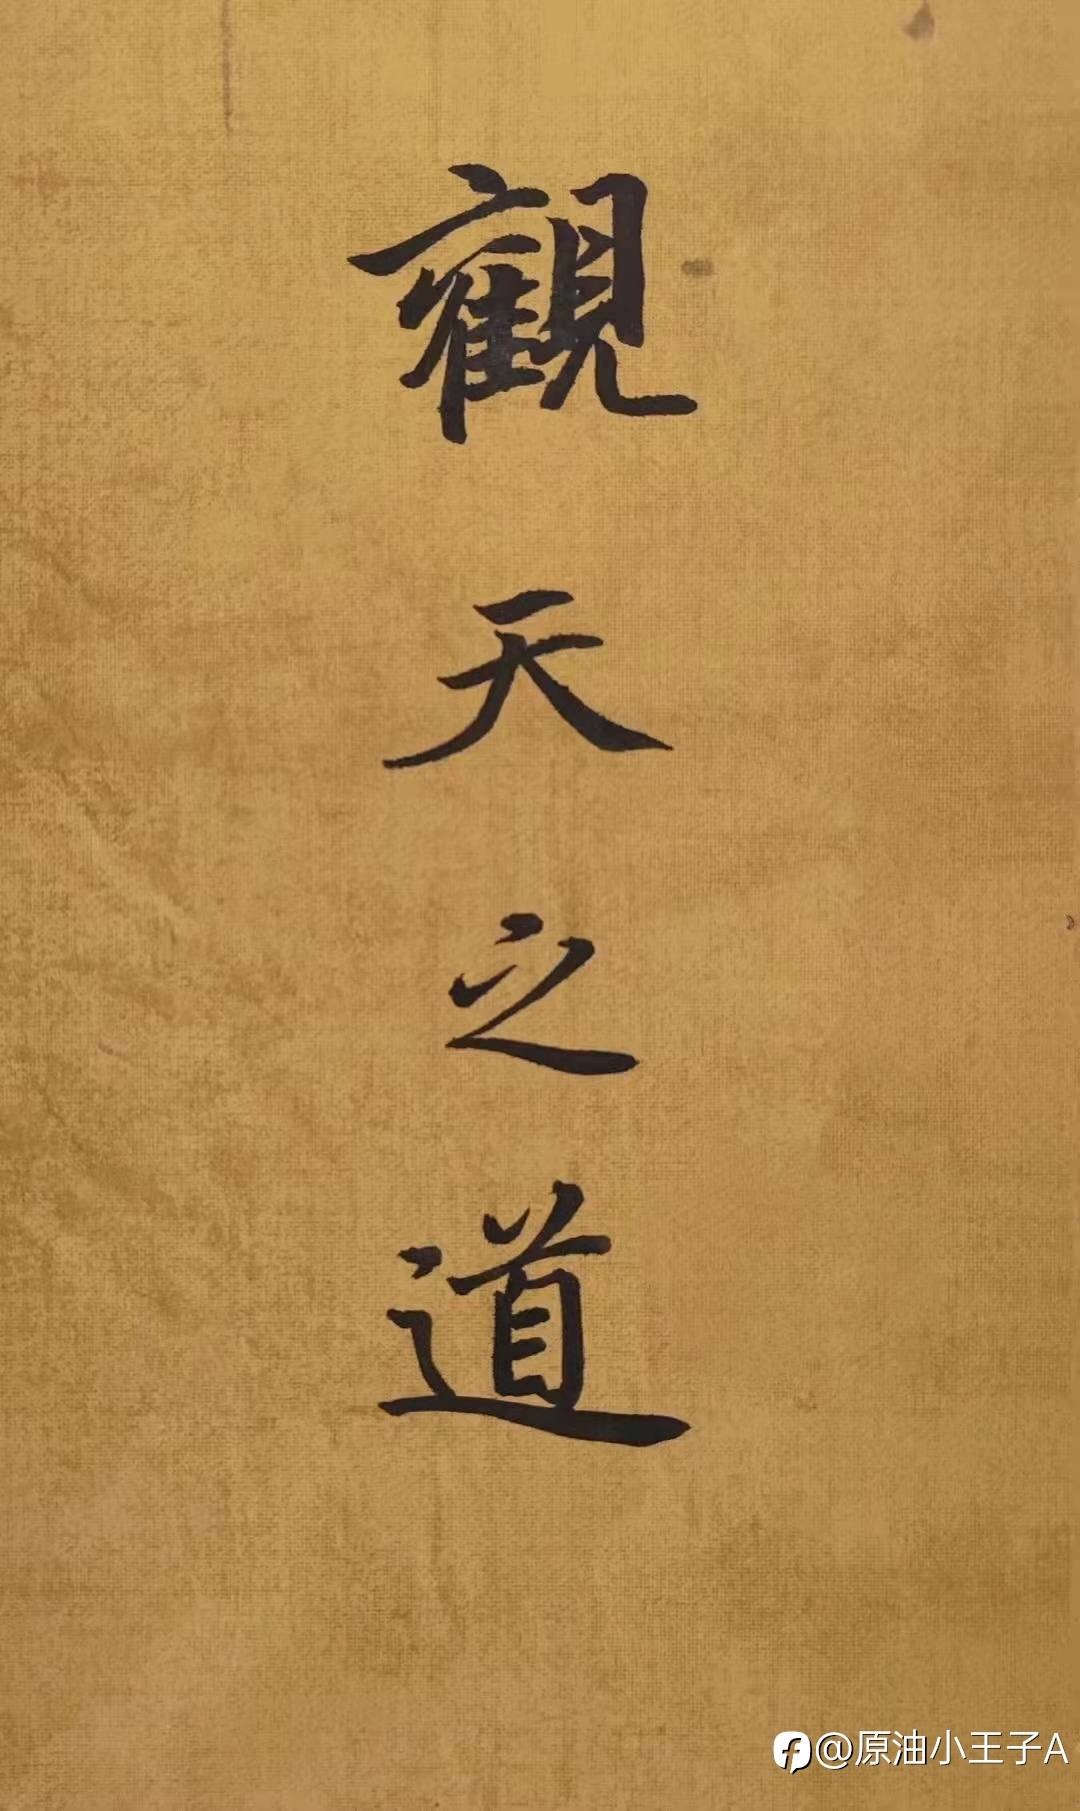 觀天之道
@原油小王子A